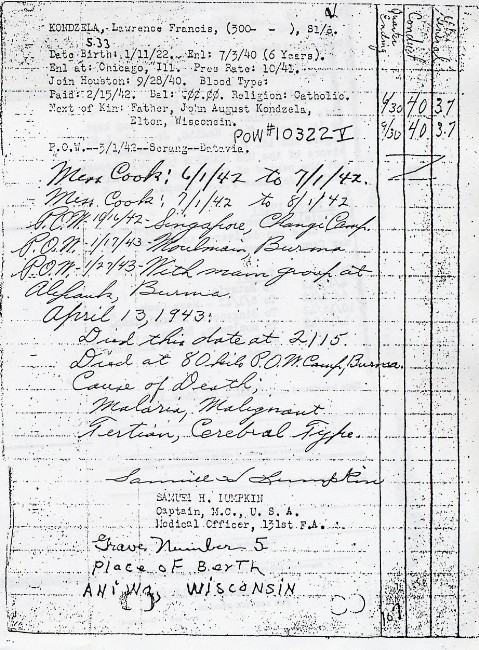 KONDZELA, Lawrence Francis, (300- - ), S1/c.
533
Date Birth: 1/11/22.. Enl: 7/3/40 (6 Years).
Enl at: Chicago, Ill. Pres Rate: 10/41.
Join Houston: 9/28/40. Blood Type:
Paid: 2/15/42. Bal: Religion: Catholic.
Next of Kin: Father, John August Kondzela,
Elton, Wisconsin.
POW #10322 V
P.O.W.--3/1/42--Serang--Batavia.
Mess Cook: 6/1/42 to 7/1/42.
Mess Cook: 7/1/42 to 8/1/42
P.O.W.-10/16/42-Singapore, Changi Camp.
P.O.W.-1/17/43-Moulmain, Burma
P.O.W.-1/27/43-With main group at
Burma.
April 13, 1943:
Died this date at 2115.
Died at 80 kilo P.O.W. Camp, Burma.
Cause of Death;
Malaria, Malignant
Tertian, Cerebral Type.
SAMUEL H. LUMPKIN
Captain, M.C., U. S. A.
Medical Officer, 131st F.A.
Grave Number 5
Place of Berth
ANiWa, WISCONSIN
Quarter Ending
Conduct
6/30 4.0 3.7
9/30 4.0 3.7
107